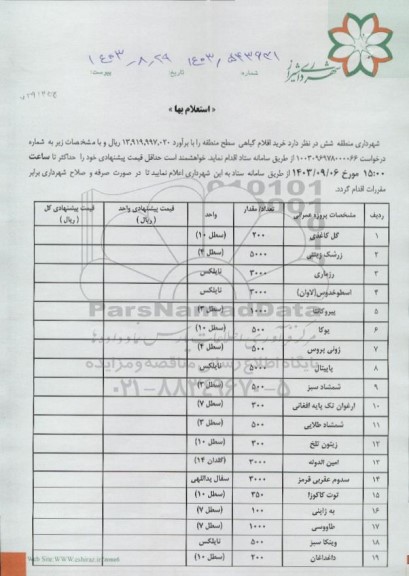 شهرداری شیراز
شماره ۱۴۰۳/۵۴۳۹۳۱ تاریخ ۱۴۰۳-۸-۲۹ پیوست:
« استعلام بها »
شهرداری منطقه شش در نظر دارد خرید اقلام گیاهی سطح منطقه را با برآورد ۱۳,۹۱۹,۹۹۷,۰۲۰ ریال و با مشخصات زیر به شماره
درخواست ۱۰۰۳۰۹۶۹۷۸۰۰۰۰۶۶ از طریق سامانه ستاد اقدام نماید. خواهشمند است حداقل قیمت پیشنهادی خود را حداکثر تا ساعت
۱۵:۰۰ مورخ ۱۴۰۳/۰۹/۰۶ از طریق سامانه ستاد به این شهرداری اعلام نمایید تا در صورت صرفه و صلاح شهرداری برابر
مقررات اقدام گردد.
ردیف مشخصات پروژه عمرانی تعداد/ مقدار واحد قیمت پیشنهادی واحد (ریال) قیمت پیشنهادی کل (ریال)
۱ گل کاغذی ۲۰۰ (سطل ۱۰)
۲ زرشک زینتی ۵۰۰۰ (سطل ۴)
۳ رزماری ۳۰۰۰ نایلکس
۴ اسطوخدوس(لاوان) ۳۰۰۰ نایلکس
۵ پیروکانتا ۱۰۰۰ (سطل ۳)
۶ یوکا ۵۰۰ (سطل ۱۰)
۷ زونی پروس ۵۰۰ (سطل ۴)
۸ پاپیتال ۵۰۰۰ نایلکس
۹ شمشاد سبز ۵۰۰ (سطل ۳)
۱۰ ارغوان تک پایه افغانی ۳۰۰ (سطل ۷)
۱۱ شمشاد طلایی ۵۰۰ (سطل ۳)
۱۲ زیتون تلخ ۳۰۰ (سطل ۱۰)
۱۳ امین الدوله ۳۰۰۰ (گلدان ۱۴)
۱۴ سدوم عقربی قرمز ۲۰۰۰ سفال یداللهی
۱۵ توت کاکوزا ۳۵۰ (سطل ۱۰)
۱۶ به ژاپنی ۱۰۰ (سطل ۷)
۱۷ طاووسی ۱۰۰۰ (سطل ۷)
۱۸ وینکا سبز ۵۰۰ نایلکس
۱۹ داغداغان ۲۰۰ (سطل ۱۰)
ParsNamadData
پایگاه اطلاع رسانی مناقصه و مزایده
۰۲۱-۸۸۳۴۹۶۷۰-۵